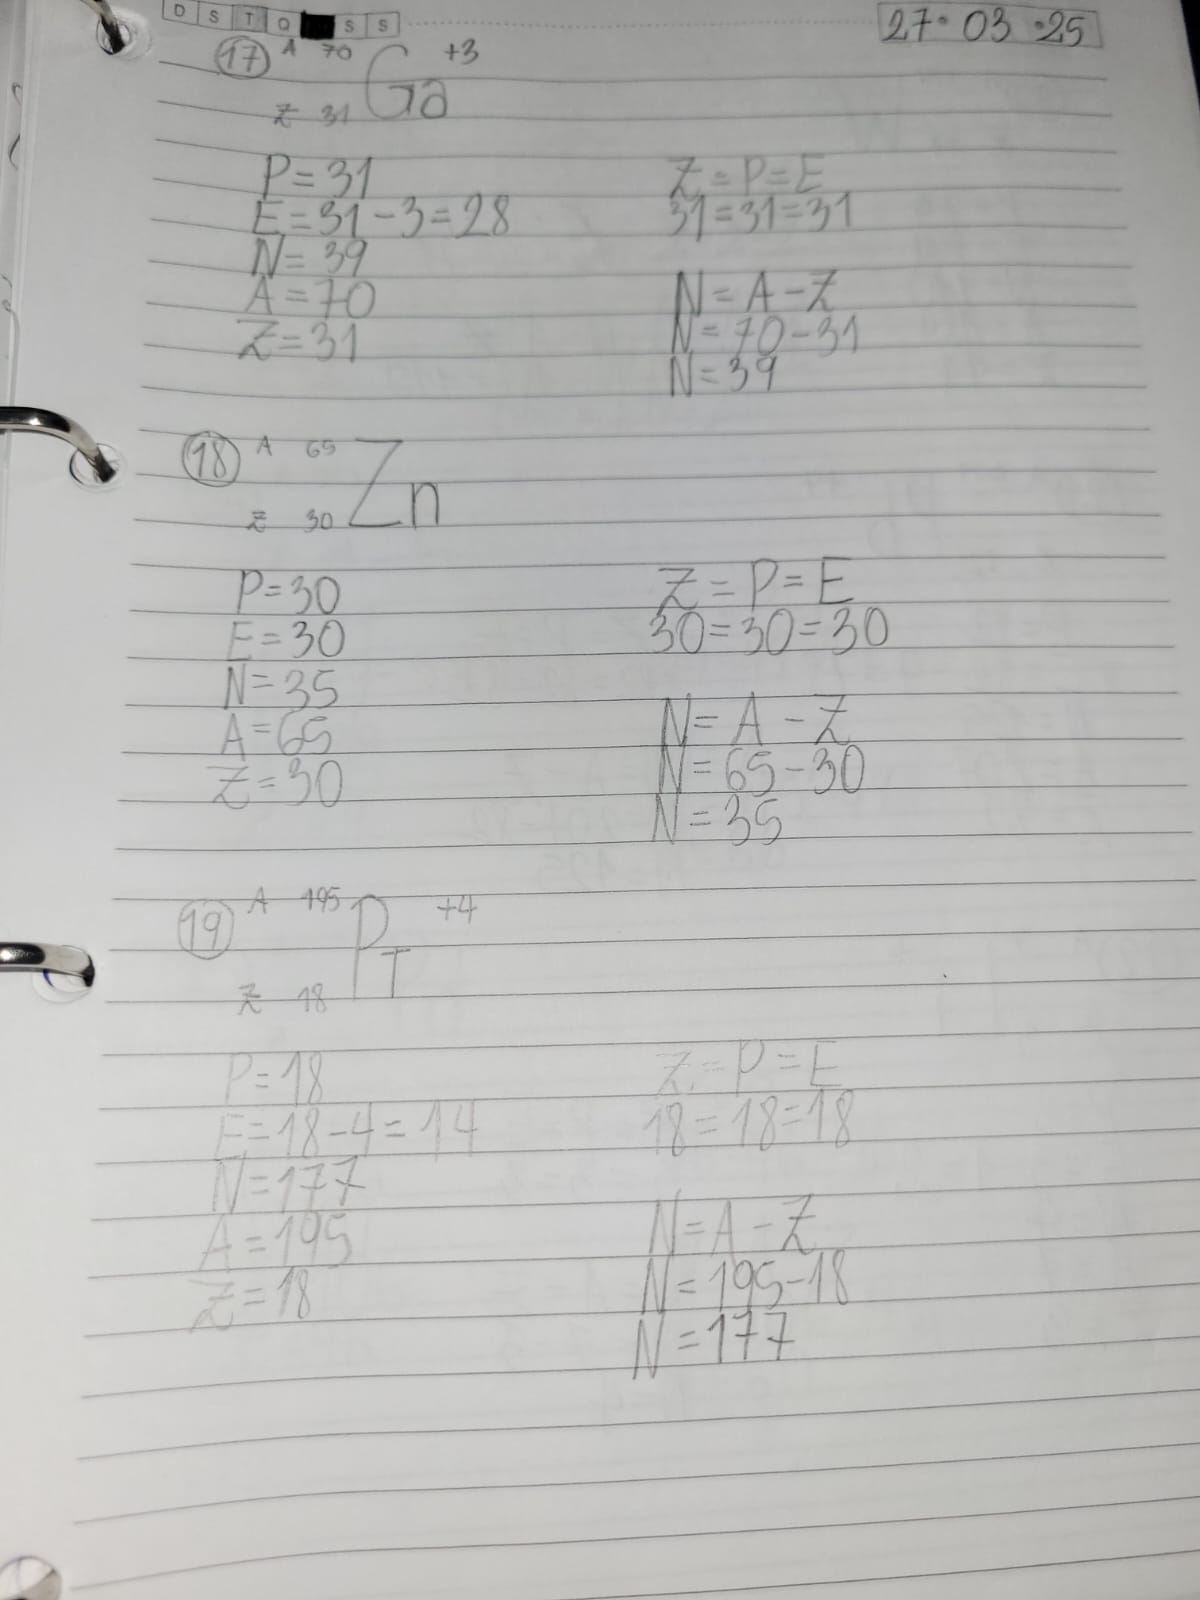 D S T Q S S
27.03.25
17 A 70 Ga +3
Z 31
P=31
E=31-3=28
N=39
A=70
Z=31
Z=P=E
31=31=31
N=A-Z
N=70-31
N=39
18 A 65 Zn
Z 30
P=30
E=30
N=35
A=65
Z=30
Z=P=E
30=30=30
N=A-Z
N=65-30
N=35
19 A 195 PT +4
Z 18
P=18
E=18-4=14
N=177
A=195
Z=18
Z=P=E
18=18=18
N=A-Z
N=195-18
N=177